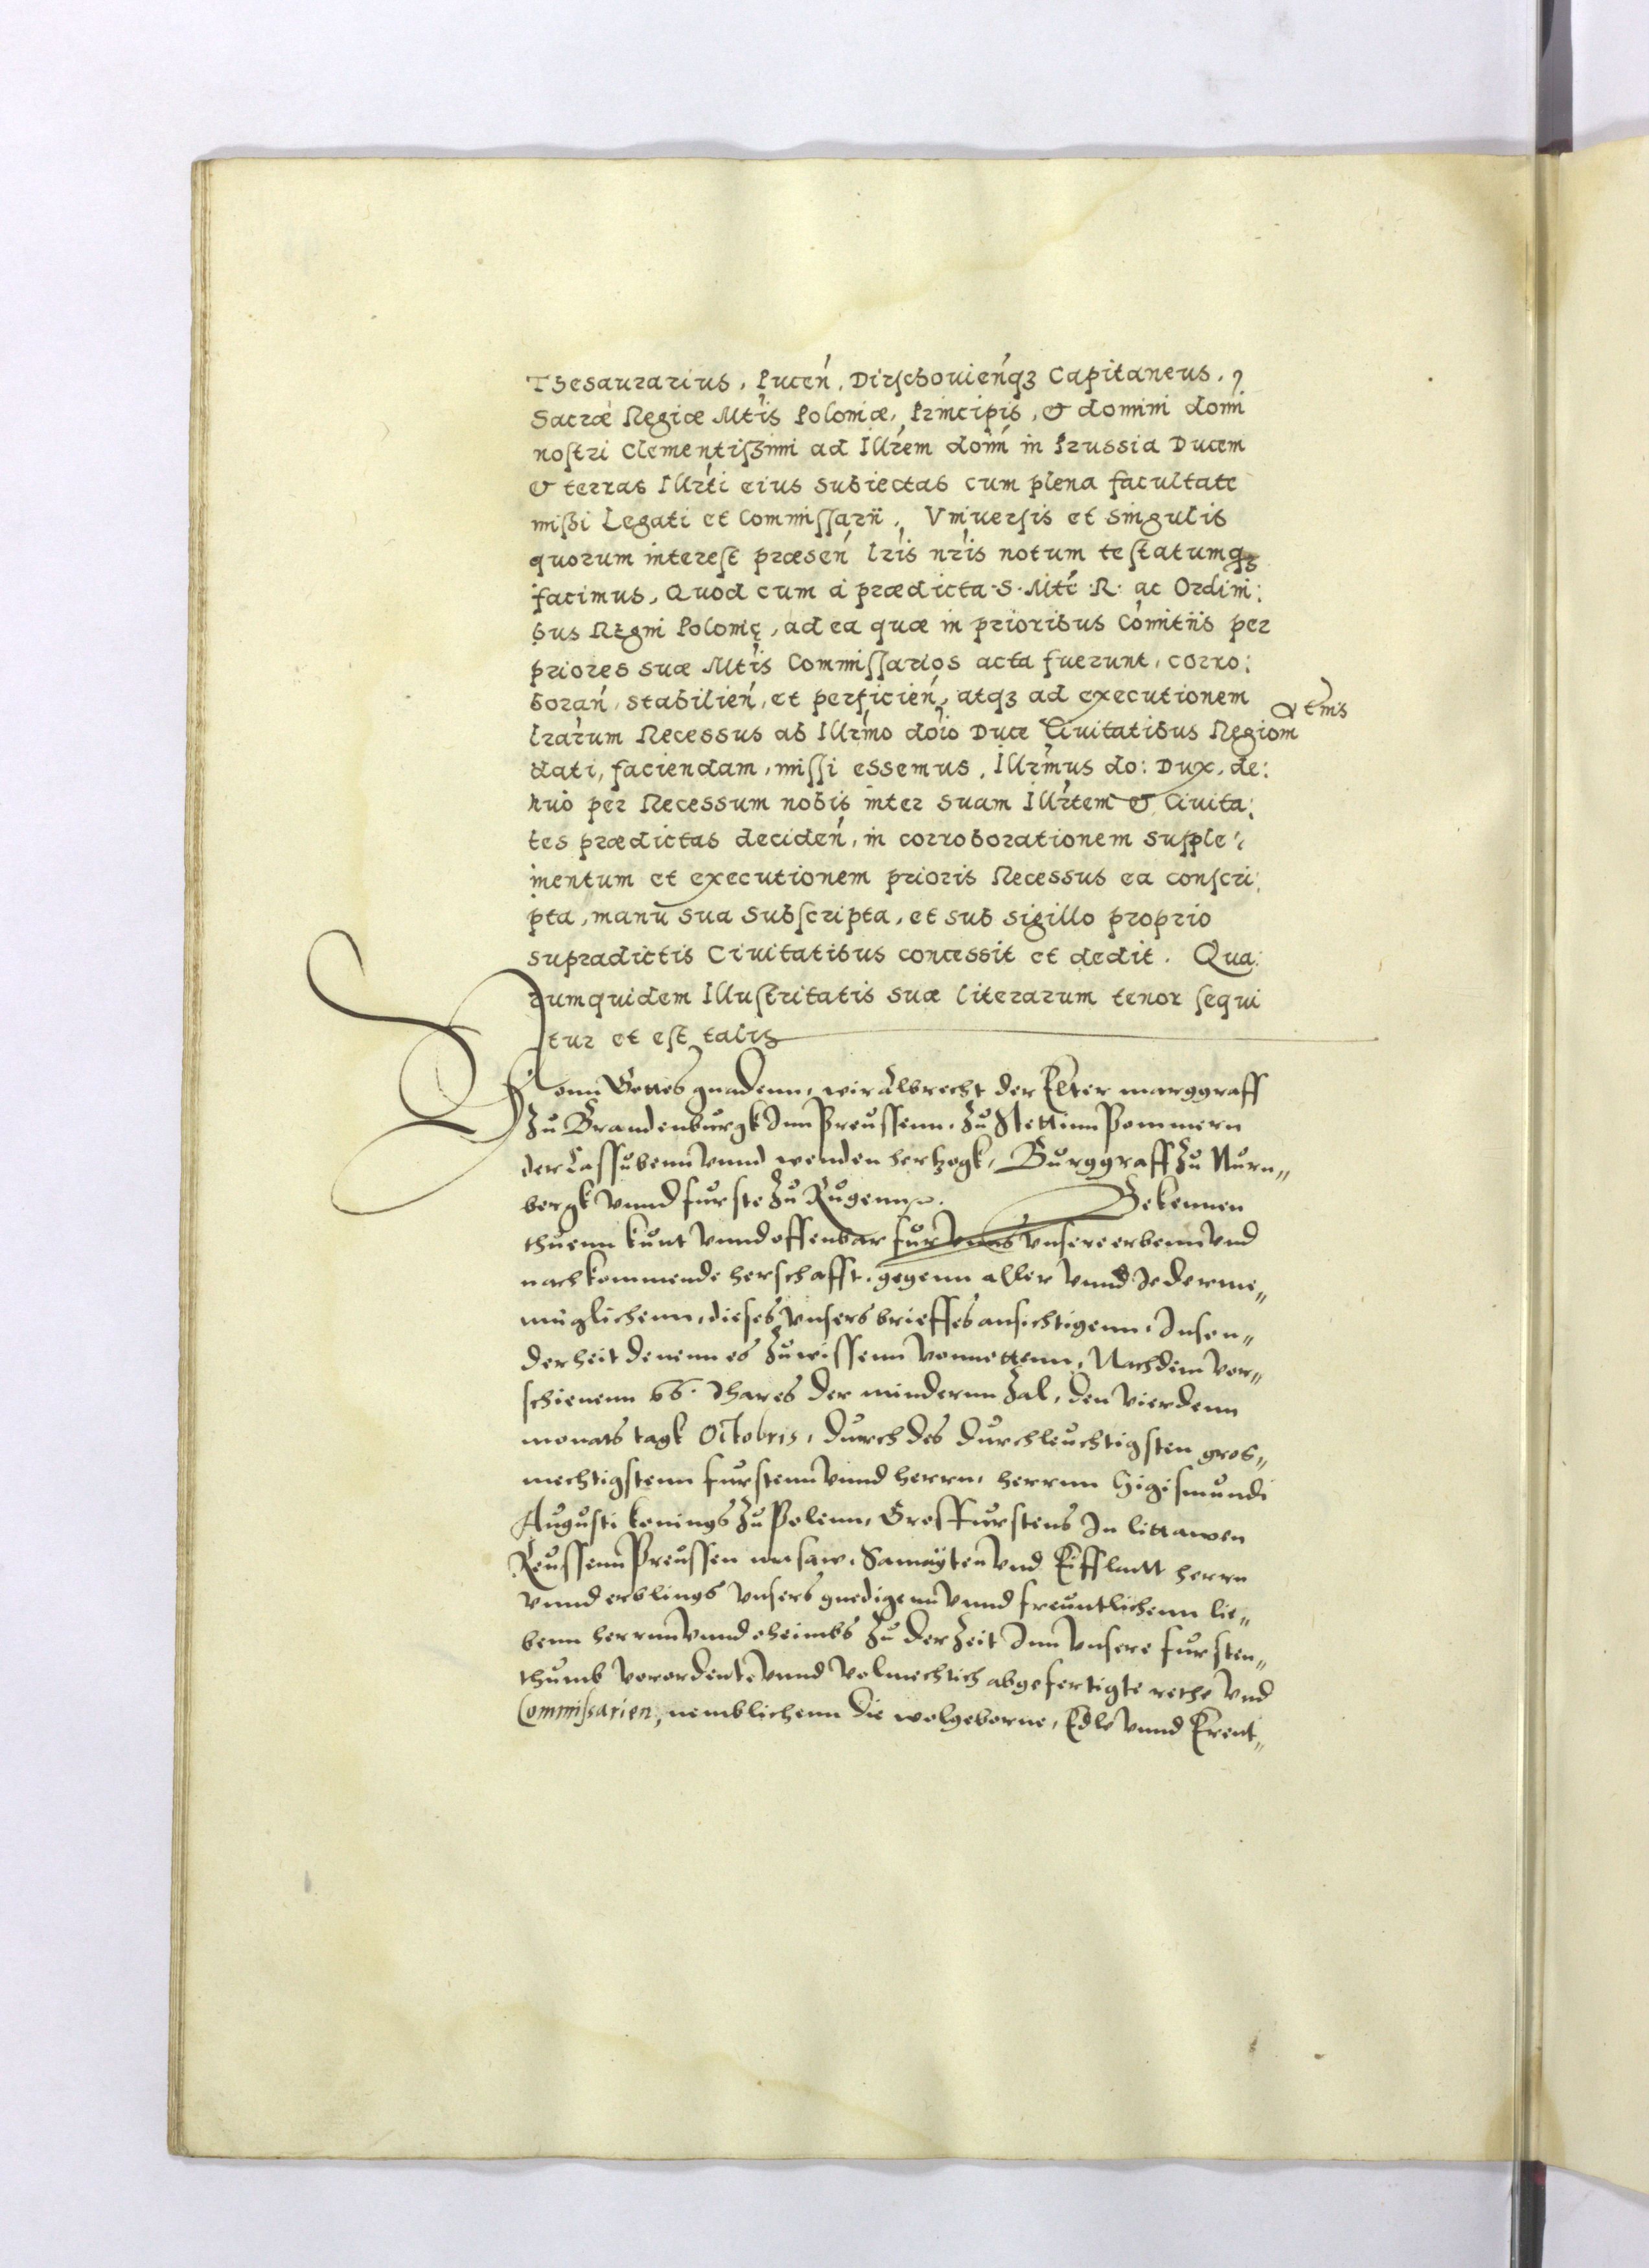 Thesaurarius, Pucen̄, Dirschouien̄qꝫ Capitaneus,
Sacræ Regiæ Mtis Poloniæ, Principis, & domini domi
nostri Clementissimi ad Illrem doim̄ in Prussia Ducem
& terras Illrti eius subiectas cum plena facultate
missi Legati et Commissarii, Vniuersis et singulis
quorum interest præsen̄ lris nris notum testatumqꝫ
facimus, Quod cum à prædicta S. Mte R. ac Ordini:
bus Regni Polonię, ad ea quæ in prioribus Comitiis per
priores suæ Mtis Commissarios acta fuerunt, corro:
boran̄, stabilien̄, et perficien̄, atqꝫ ad executionem
lrarum Recessus ab Illrmo doio Duce Ciuitatibus Regiom & tmis
dati, faciendam, missi essemus, Illrmus do: Dux, de:
nuò per Recessum nobis inter suam Illrtem & Ciuita:
tes prædictas deciden̄, in corroborationem supple:
mentum et executionem prioris Recessus ea conscri:
pta, manu sua subscripta, et sub sigillo proprio
supradictis Ciuitatibus concessit et dedit. Qua:
rumquidem Illustritatis suæ literarum tenor sequi
tur et est talis
Vonn Gottes gnadenn, wir Albrecht der Elter marggraff
Zu Brandenburgk Inn Preussenn, Zu Stettinn Pommern
der Cassubenn vnnd wenden hertzogk, Burggraff Zu Nurn„
bergk vnnd furste Zu Rugenn. Bekennen
thuenn kunt vnnd offenbar fur vnns vnsere erbenn vnd
nachkommende herschafft, gegenn aller vnnd Iederme„
niglichenn, dieses vnsers brieffes ansichtigenn, Inson„
derheit denenn es Zuwissenn vonnettenn, Nachdem vor„
schienenn 66. Ihares der mindernn Zal, den vierdenn
monats tagk Octobris, durch des durchleuchtigsten gros„
mechtigstenn furstenn vnnd herrn, herrnn Sigismundi
Augusti konings Zu Polenn, Grosfurstens In littawen
Reussenn Preussen masaw, Samayten vnd Eifflantt herrn
vnnd erblings vnsers gnedigenn vnnd freuntlichenn lie„
benn herrnn vnnd oheimbs Zu der Zeit Inn vnsere fursten„
thumb verordente vnnd volmechtich abgefertigte rethe vnd
Commissarien, nemblichenn die wolgeborne, Edle vnnd Erent„